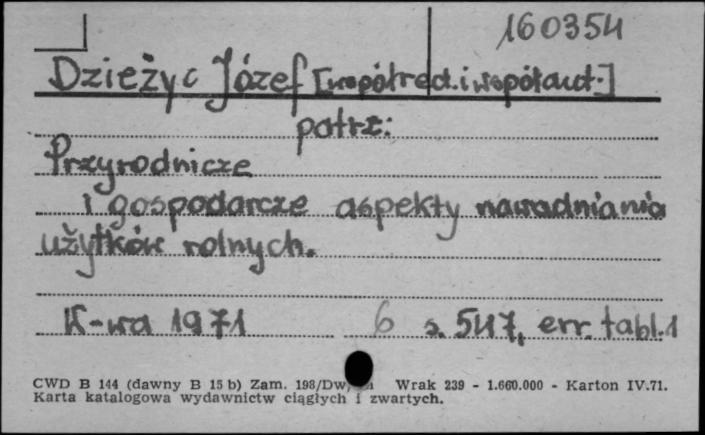 160354
Dzieżyc Józef [współred. i współaut.]
patrz:
Przyrodnicze
i gospodarcze aspekty nawadniania
użytków rolnych.
W-wa 1971 6 s. 547, err. tabl. 1
CWD B 144 (dawny B 15 b) Zam. 198/Dw/ Wrak 239 - 1.660.000 - Karton IV.71.
Karta katalogowa wydawnictw ciągłych i zwartych.